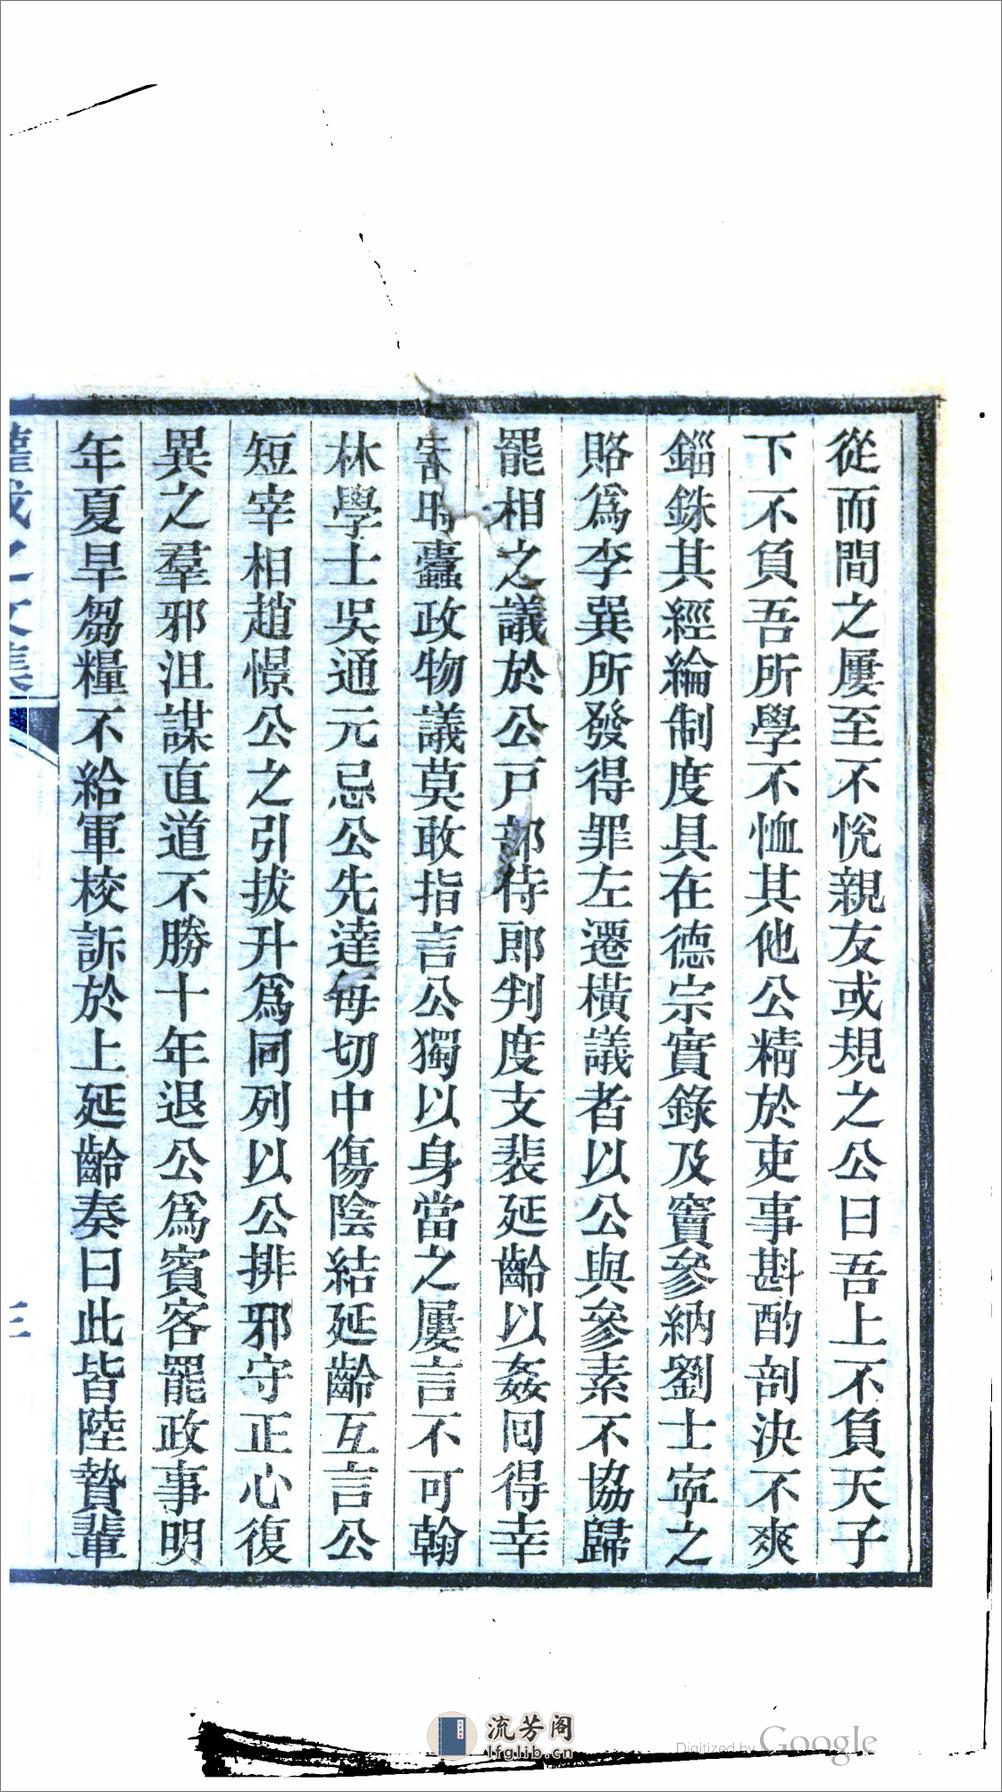 從而間之屢至不悅親友或規之公曰吾上不負天子
下不負吾所學不恤其他公精於吏事斟酌剖決不爽
錙銖其經綸制度具在德宗實錄及竇參納劉士寧之
賂爲李巽所發得罪左遷橫議者以公與參素不協歸
罷相之議於公戸部侍郎判度支裴延齡以姦回得幸
害時蠹政物議莫敢指言公獨以身當之屢言不可翰
林學士吳通元忌公先達每切中傷陰結延齡互言公
短宰相趙憬公之引拔升爲同列以公排邪守正心復
異之羣邪沮謀直道不勝十年退公爲賓客罷政事明
年夏旱芻糧不給軍校訴於上延齡奏曰此皆陸贄輩
權載之文集
三
流芳阁
lfglib.cn
Digitized by Google